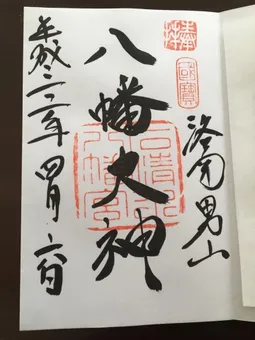 奉拝
國寶
洛南男山
八幡大神
石清水八幡宮
平成 年四月六日